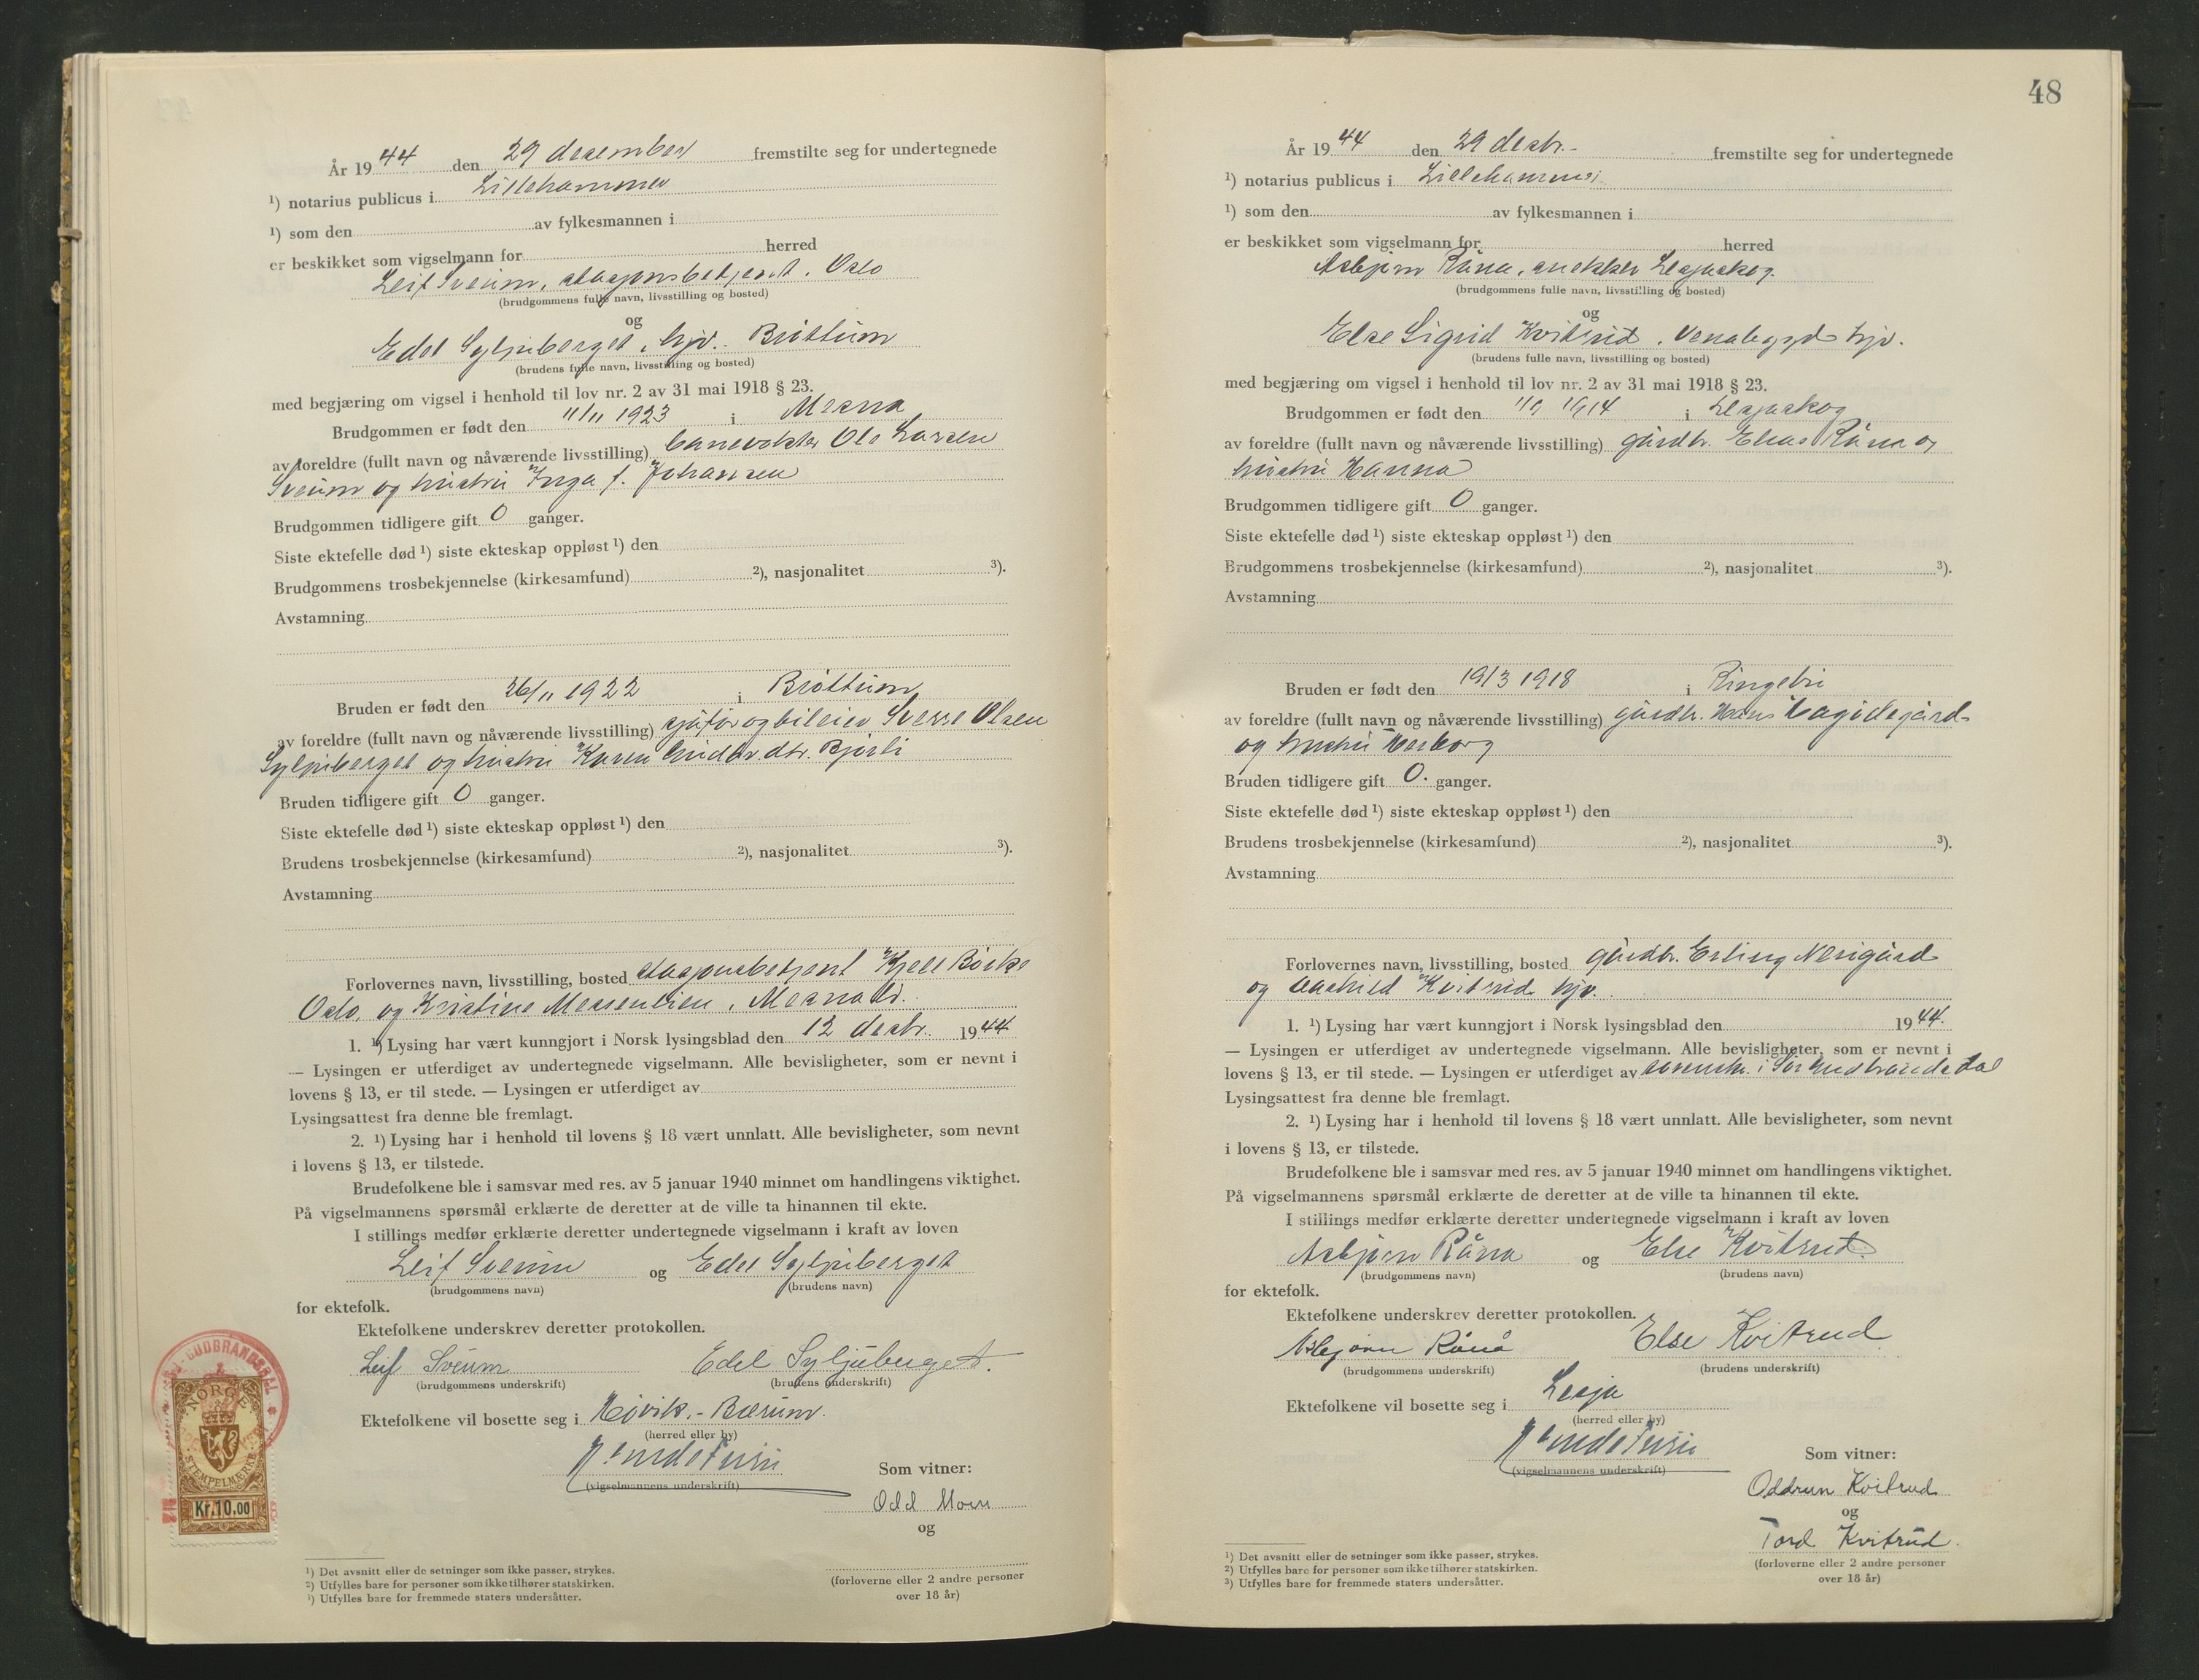 År 1944 den 29 desember fremstilte seg for undertegnede
¹) notarius publicus i Lillehammer
¹) som den av fylkesmannen i
er beskikket som vigselmann for herred
Leif Sveum, stasjonsbetjent. Oslo
(brudgommens fulle navn, livsstilling og bosted)
og
Edel Syljuberget, hjv. Brøttum
(brudens fulle navn, livsstilling og bosted)
med begjæring om vigsel i henhold til lov nr. 2 av 31 mai 1918 § 23.
Brudgommen er født den 11/11 1923 i Mesna
av foreldre (fullt navn og nåværende livsstilling) banevokter Ole Larsen
Sveum og hustru Inga f. Johansen
Brudgommen tidligere gift 0 ganger.
Siste ektefelle død ¹) siste ekteskap oppløst ¹) den
Brudgommens trosbekjennelse (kirkesamfund) ²), nasjonalitet ³).
Avstamning
Bruden er født den 26/11 1922 i Brøttum
av foreldre (fullt navn og nåværende livsstilling) sjåfør og bileier Sverre Olsen
Syljuberget og hustru Karen dtr. Bjørli
Bruden tidligere gift 0 ganger.
Siste ektefelle død ¹) siste ekteskap oppløst ¹) den
Brudens trosbekjennelse (kirkesamfund) ²), nasjonalitet ³).
Avstamning
Forlovernes navn, livsstilling, bosted stasjonsbetjent Kjell Borke
Oslo, og Kristine Messenlien, Mesnali.
1. ¹) Lysing har vært kunngjort i Norsk lysingsblad den 12 desbr. 1944
— Lysingen er utferdiget av undertegnede vigselmann. Alle bevisligheter, som er nevnt i
lovens § 13, er til stede. — Lysingen er utferdiget av
Lysingsattest fra denne ble fremlagt.
2. ¹) Lysing har i henhold til lovens § 18 vært unnlatt. Alle bevisligheter, som nevnt
i lovens § 13, er tilstede.
Brudefolkene ble i samsvar med res. av 5 januar 1940 minnet om handlingens viktighet.
På vigselmannens spørsmål erklærte de deretter at de ville ta hinannen til ekte.
I stillings medfør erklærte deretter undertegnede vigselmann i kraft av loven
Leif Sveum og Edel Syljuberget
(brudgommens navn) (brudens navn)
for ektefolk.
Ektefolkene underskrev deretter protokollen.
Leif Sveum Edel Syljuberget.
(brudgommens underskrift) (brudens underskrift)
Ektefolkene vil bosette seg i Høvik.- Bærum.
(herred eller by)
(vigselmannens underskrift)
Som vitner:
Odd Moen
og
(forloverne eller 2 andre personer
over 18 år)
GUDBRANDSDAL
NORGE
STEMPELMERKE
Kr.10.00
¹) Det avsnitt eller de setninger som ikke passer, strykes.
²) Utfylles bare for personer som ikke tilhører statskirken.
¹) Utfylles bare for fremmede staters undersåtter.
48
År 1944 den 29 desbr.- fremstilte seg for undertegnede
¹) notarius publicus i Lillehammer.
¹) som den av fylkesmannen i
er beskikket som vigselmann for herred
Asbjørn Råna, snekker Lesjaskog
(brudgommens fulle navn, livsstilling og bosted)
og
Else Sigrid Kvitrud. Venabygd hjv.
(brudens fulle navn, livsstilling og bosted)
med begjæring om vigsel i henhold til lov nr. 2 av 31 mai 1918 § 23.
Brudgommen er født den 1914 i Lesjaskog
av foreldre (fullt navn og nåværende livsstilling) gårdbr. Elias Råna og
hustru Hanna
Brudgommen tidligere gift 0 ganger.
Siste ektefelle død ¹) siste ekteskap oppløst ¹) den
Brudgommens trosbekjennelse (kirkesamfund) ²), nasjonalitet ³).
Avstamning
Bruden er født den 19/3 1918 i Ringebu
av foreldre (fullt navn og nåværende livsstilling) gårdbr. Hans
og hustru Herborg
Bruden tidligere gift 0. ganger.
Siste ektefelle død ¹) siste ekteskap oppløst ¹) den
Brudens trosbekjennelse (kirkesamfund) ²), nasjonalitet ³).
Avstamning
Forlovernes navn, livsstilling, bosted gårdbr. Erling Nerigård
og Kvitrud hjv.
1. ¹) Lysing har vært kunngjort i Norsk lysingsblad den 1944.
— Lysingen er utferdiget av undertegnede vigselmann. Alle bevisligheter, som er nevnt i
lovens § 13, er til stede. — Lysingen er utferdiget av sorenskr. i Sør Gudbrandsdal
Lysingsattest fra denne ble fremlagt.
2. ¹) Lysing har i henhold til lovens § 18 vært unnlatt. Alle bevisligheter, som nevnt
i lovens § 13, er tilstede.
Brudefolkene ble i samsvar med res. av 5 januar 1940 minnet om handlingens viktighet.
På vigselmannens spørsmål erklærte de deretter at de ville ta hinannen til ekte.
I stillings medfør erklærte deretter undertegnede vigselmann i kraft av loven
Asbjørn Råna og Else Kvitrud
(brudgommens navn) (brudens navn)
for ektefolk.
Ektefolkene underskrev deretter protokollen.
Asbjørn Rånå Else Kvitrud
(brudgommens underskrift) (brudens underskrift)
Ektefolkene vil bosette seg i Lesja
(herred eller by)
(vigselmannens underskrift)
Som vitner:
Oddrun Kvitrud
og
Tord Kvitrud.
(forloverne eller 2 andre personer
over 18 år)
¹) Det avsnitt eller de setninger som ikke passer, strykes.
²) Utfylles bare for personer som ikke tilhører statskirken.
³) Utfylles bare for fremmede staters undersåtter.